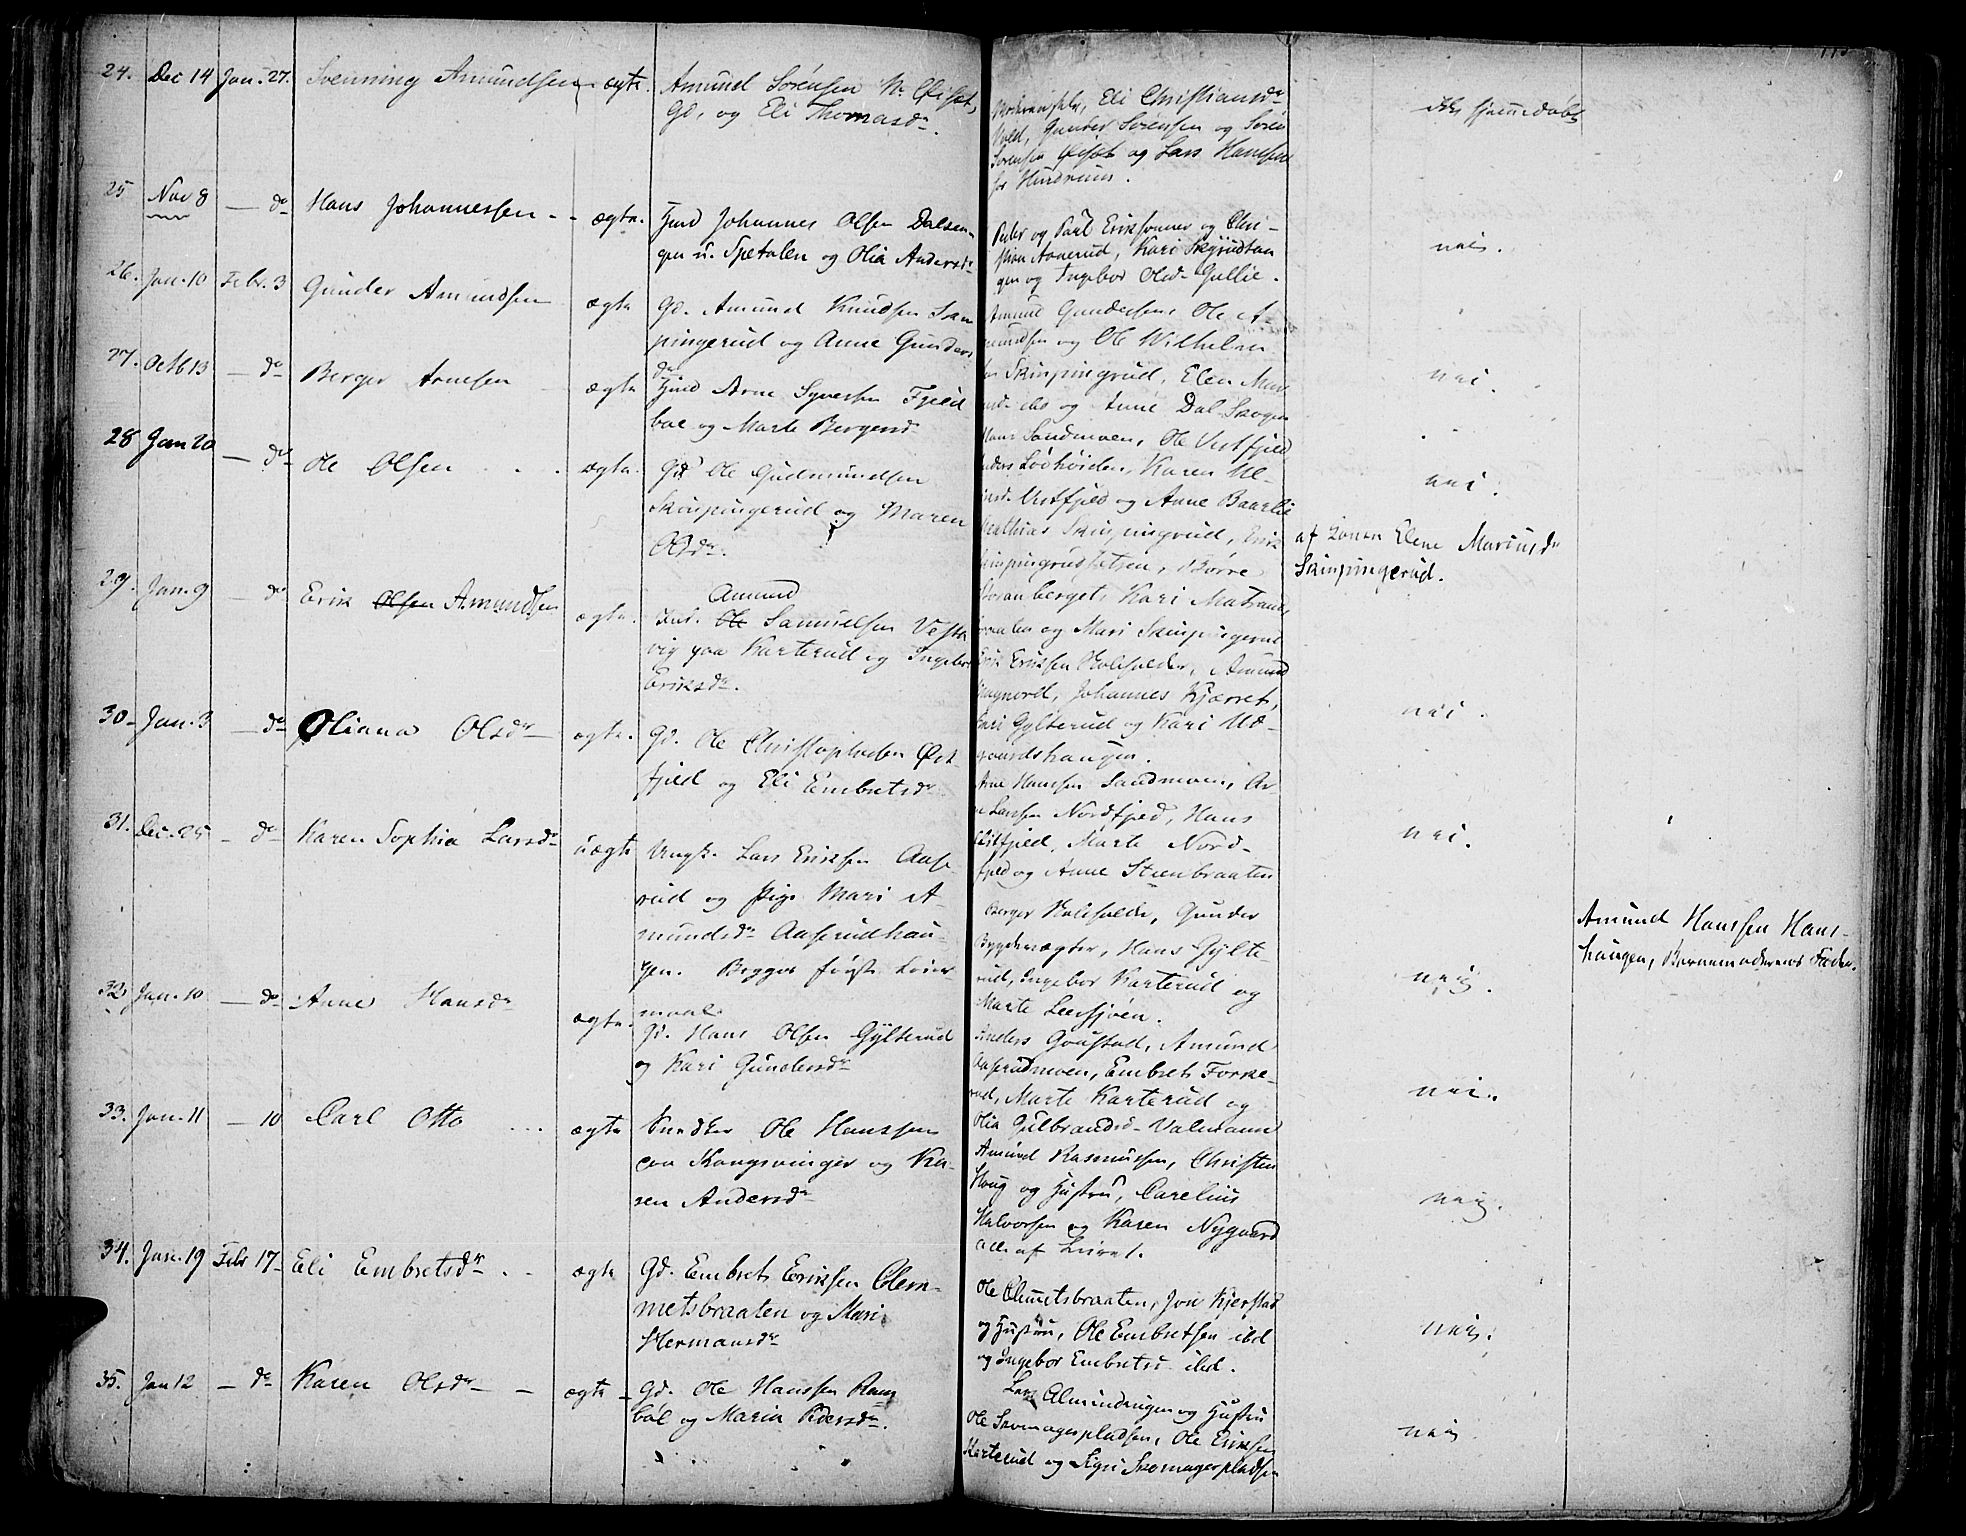 24. Dec 14 Jan. 27. Svenning Amundsen ægte. Amund Sørensen
Gd, og Eli Thomasdr.
Eli Christiansdr
Gunder Sørensen og Søren
Sørensen og Lars Hanssen
ikke hjemmedøbt
25 Nov 8 — do Hans Johannessen - - ægte. Hmd Johannes Olsen Dalsen-
gen u. Spetalen og Olia Andersdr
Peder og Paul Erikssønner og Chri-
stian Aanerud, Kari Skyrudtan
gen og Ingebor Olsd. Gullie.
nei.
26. Jan. 10 Febr. 3 Gunder Amundsen ægte Gd. Amund Knudsen Skin
pingerud og Anne Gunders
dr
Amund Gundersen, Ole A-
mundsen og Ole Wilhelm
sen Skinpingrud, Elen Mari
usd. ibd og Anne Dal Skogen
nei.
27. Octb 13 — do Berger Arnesen ægte Hmd Arne Syversen Fjeld
boe og Marte Bergersd
Hans Sandmoen, Ole Vestfjeld
Anders Lødhøiden, Karen
Vestfjeld og Anne Baarlie
nei.
28 Jan 20 — do Ole Olsen . . . ægte. Gd Ole Gudmundsen
Skinpingerud og Maren
Olsdr.
Mathias Skinpingrud, Erik
Skinpingrudsætren, Børre
berget, Kari Matrand
og Mari Skinpingerud
af Konen Elene Mariusdr
Skinpingerud.
29. Jan. 9 — do Erik Olsen Amundsen ægte. Amund
Inds. Ole Samuelsen Vesta
vig paa Karterud og Ingebor
Eriksdr.
Erik Eriksen Holefolden, Amund
Magnord, Johannes Kjærret,
Kari Gylterud og Kari
gaardshaugen.
nei.
30. Jan. 3 — do Oliana Olsdr ægte. Gd. Ole Christophersen Øst
fjeld og Eli Embretsdr
Arne Hanssen Sandmoen, Ar-
ne Larssen Nordfjeld, Hans
Østfjeld, Marte Nord-
fjeld og Anne Steenbraaten
nei.
31. Dec. 25 — do Karen Sophia Larsdr uægte Ungk. Lars Eriksen Aase
rud og Pige Mari A-
mundsdr Aaserudhau-
gen. Begges første Leier
maal
Berger Holefolden, Gunder
Hans Gylte-
rud, Ingebor Karterud og
Marte Leersjøen.
neig.
Amund Hanssen Hans-
haugen, Barnemoderens Fader.
32. Jan. 10 — do Anne Hansdr ægte. Gd. Hans Olsen Gylterud
og Kari Gundersdr
Anders Goustad, Amund
Aaserudmoen, Embret Forke-
rud, Marte Karterud og
Olia Gulbrandsd. Valmann
nei.
33. Jan. 11 — 10 Carl Otto . . . ægte Snedker Ole Hanssen
paa Kongsvinger og Ka-
ren Andersdr
Amund Rasmussen, Christen
Houg og Hustru, Carelius
Halvorsen og Karen Nygaard
alle af Leiret.
neig.
34. Jan. 19 Febr 17 Eli Embretsdr . - ægte Gd. Embret Eriksen Clem-
metsbraaten og Mari
Hermansdr
Ole Clemetsbraaten, Jon Kjerstad
og Hustru, Ole Embretsen ibd
og Ingebor Embretsd. ibd.
neig.
35. Jan 12 — do Karen Olsdr — — ægte — Gd. Ole Hanssen Ram
bøl og Maria Pedersdr.
Lars Almindingen og Hustru
Ole Skomagerpladsen, Ole Eriksen
Karterud og Sigri Skomagerpladsen
neig